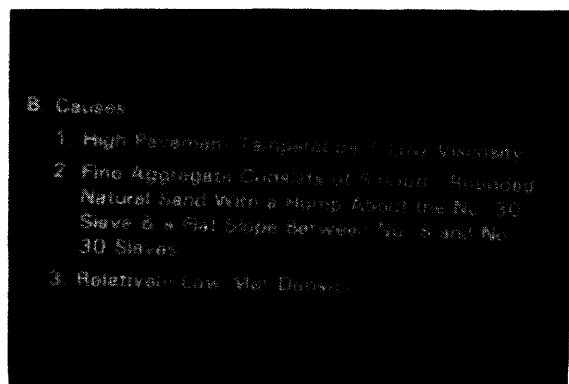 B. Causes
1. High Pavement Temperature / Low Viscosity
2. Fine Aggregate Consists of Smooth, Rounded
Natural Sand With a Hump About the No. 30
Sieve & a Flat Slope Between No. 8 and No.
30 Sieves
3. Relatively Low Mat Density